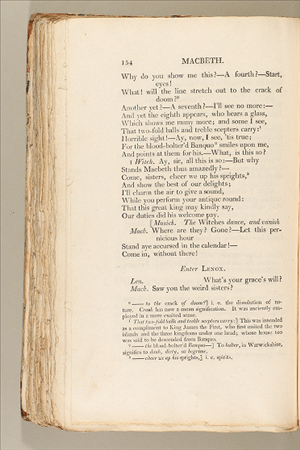 154 MACBETH.
Why do you show me this?—A fourth?—Start,
eyes!
What! will the line stretch out to the crack of
doom?⁶
Another yet?—A seventh?—I'll see no more:—
And yet the eighth appears, who bears a glass,
Which shows me many more; and some I see,
That two-fold balls and treble scepters carry:⁷
Horrible sight!—Ay, now, I see, 'tis true;
For the blood-bolter'd Banquo⁸ smiles upon me,
And points at them for his.—What, is this so?
1 Witch. Ay, sir, all this is so:—But why
Stands Macbeth thus amazedly?—
Come, sisters, cheer we up his sprights,⁹
And show the best of our delights;
I'll charm the air to give a sound,
While you perform your antique round:
That this great king may kindly say,
Our duties did his welcome pay.
[Musick. The Witches dance, and vanish.
Macb. Where are they? Gone?—Let this per-
nicious hour
Stand aye accursed in the calendar!—
Come in, without there!
Enter LENOX.
Len. What's your grace's will?
Macb. Saw you the weird sisters?
⁶ —— to the crack of doom?] i. e. the dissolution of na-
ture. Crack has now a mean signification. It was anciently em-
ployed in a more exalted sense.
⁷ That two-fold balls and treble scepters carry:] This was intended
as a compliment to King James the First, who first united the two
islands and the three kingdoms under one head; whose house too
was said to be descended from Banquo.
⁸ —— the blood-bolter'd Banquo—] To bolter, in Warwickshire,
signifies to daub, dirty, or begrime.
⁹ —— cheer we up his sprights,] i. e. spirits.